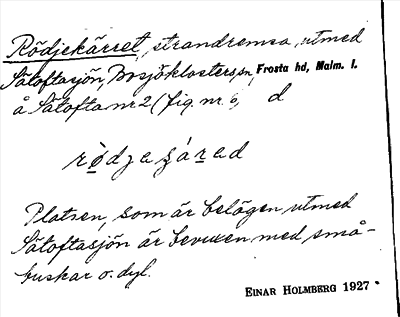 Rödjekärret, strandremsa, utmed
Sätoftasjön, Bosjöklosters sn, Frosta hd, Malm. l.
å Sätofta nr 2 (fig. nr 6, d
Platsen, som är belägen utmed
Sätoftasjön är bevuxen med små-
buskar o. dyl.
EINAR HOLMBERG 1927